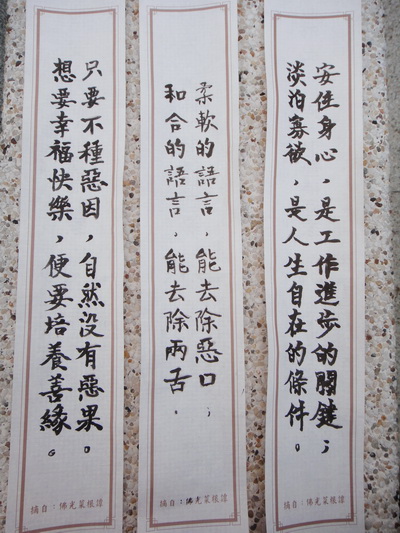 安住身心，是工作進步的關鍵；
淡泊寡欲，是人生自在的條件。
摘自：佛光菜根譚
柔軟的語言，能去除惡口；
和合的語言，能去除兩舌。
摘自：佛光菜根譚
只要不種惡因，自然沒有惡果。
想要幸福快樂，便要培養善緣。
摘自：佛光菜根譚